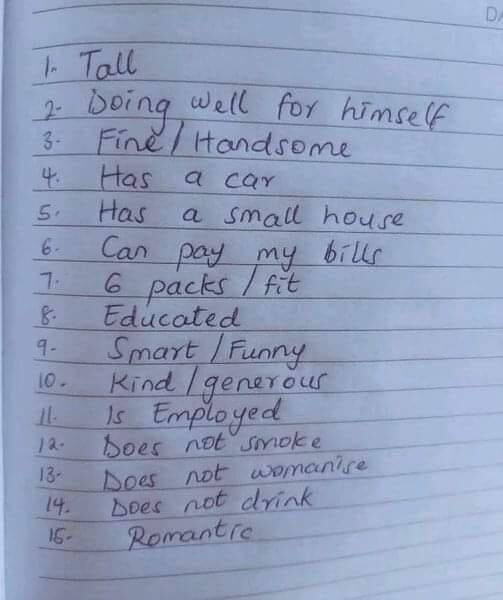 DA
1. Tall
2- Doing well for himself
3. Fine/Handsome
4. Has a car
5. Has a small house
6. Can pay my bills
7. 6 packs/fit
8. Educated
9- Smart/Funny
10. Kind/generous
11. Is Employed
12. Does not smoke
13- Does not womanise
14. Does not drink
15- Romantic